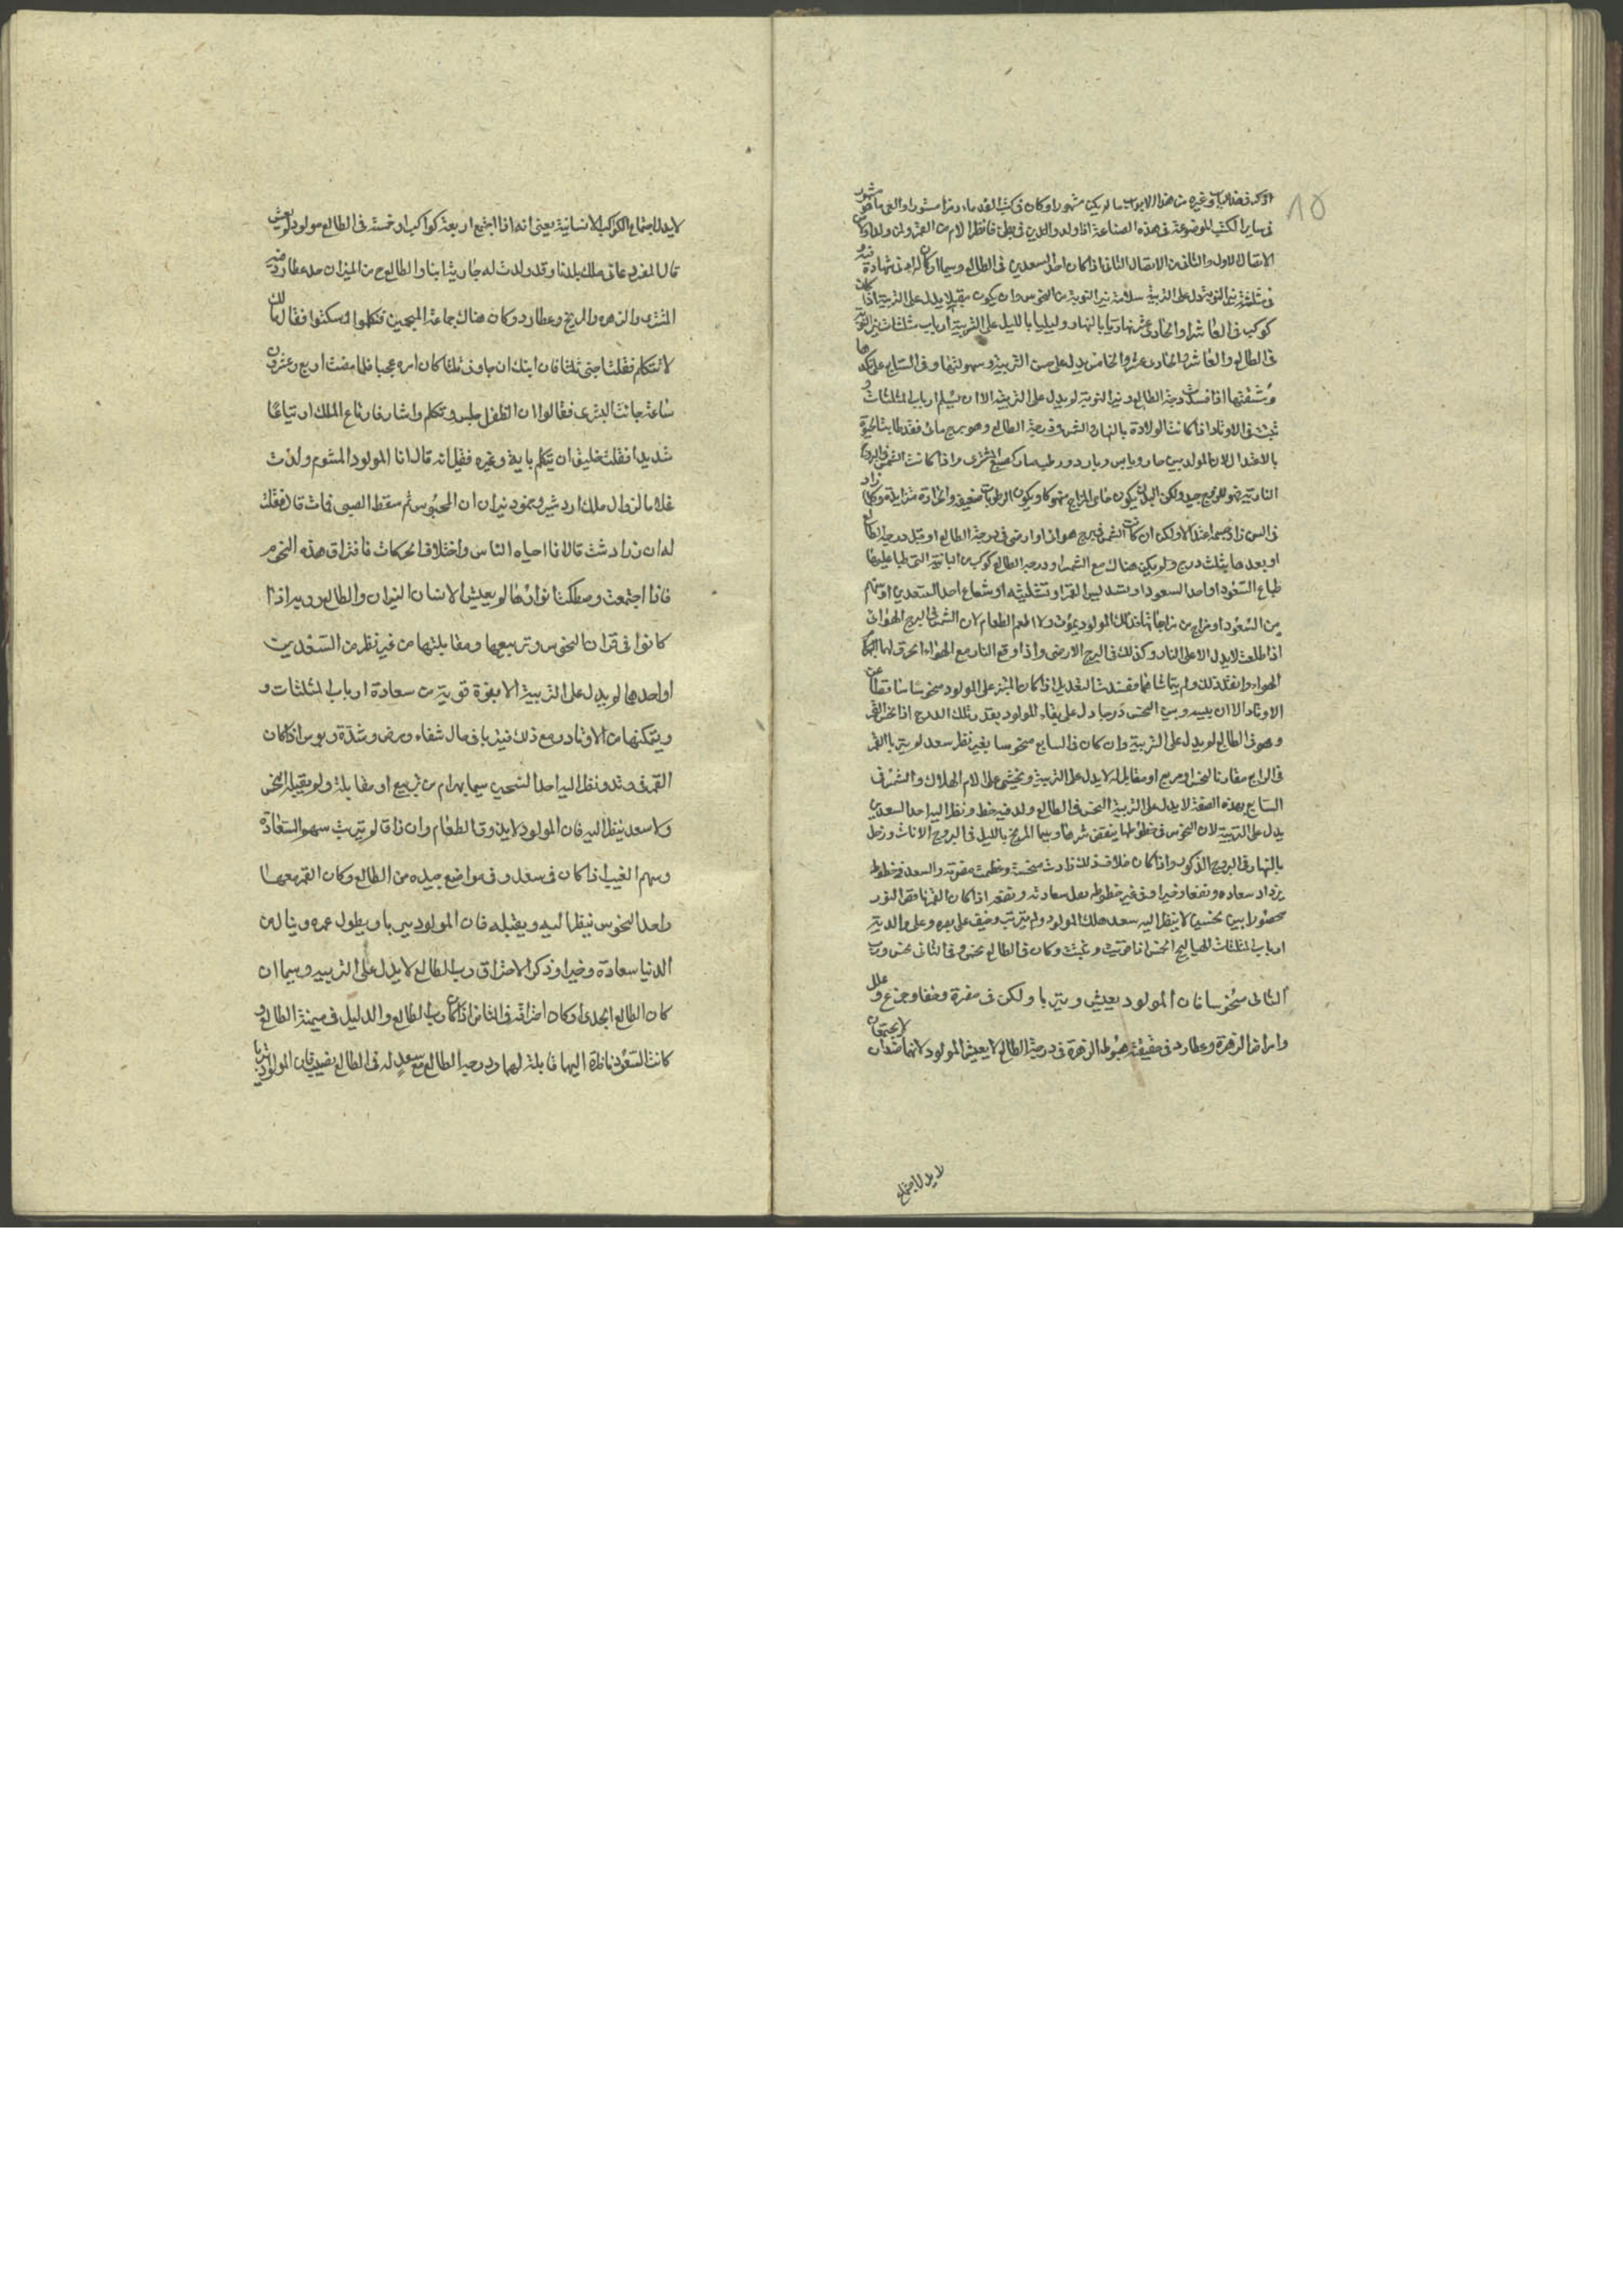 ١٥
اذكر فى هذا الباب وغيره من هذا الابواب ما لم يكن مشهورا وكان فى كتب القدماء رمزا مستورا والغى ما هو مشهور
فى ساير الكتب الموضوعة فى هذه الصناعة اذا ولد والدين فى بطن فانظر الام من القمر ولمن ولد اولا من
الانتقال الاول والثانى من الانتقال الثانى اذا كان احد السعدين فى الطالع وسيما ان كان له فى شهادة
فى مثلثة نير النوبة يدل على التربية سلامة نير النوبة من النحوس وان يكون مقبلا يدل على التربية اذا كان
كوكب فى العاشر او الحادى عشر نهاريا بالنهار وليليا بالليل على التربية ارباب مثلثات نير النوبة
فى الطالع والعاشر والحادى عشر والخامس يدل على حسن التربية وسهولتها وفى السابع على نكدها
ومشقتها اذا فسدت درجة الطالع ونير النوبة لم يدل على التربية الا ان يسلم ارباب المثلثات و
تثبت فى الاوتاد اذا كانت الولادة بالنهار والشمس فى درجة الطالع وهو برج مائى فقد طابت الحيوة
بالاعتدال لان المولد بين حار ويابس وبارد ورطب صار كصبغ المشترى واذا كانت الشمس فى البروج
النارية فهو للفرج جيد ولكن البدن يكون حامى المزاج منهوكا ويكون الرطوبات ضعيفة والحرارة متزايدة وكلما زاد
فى السن زاد جسمه اعتدالا ولكن ان كانت الشمس فى برج هوائى او ارضى فى درجة الطالع او قبل درجة الطالع
او بعدها بثلث درج ولم يكن هناك مع الشمس او درجة الطالع كوكب من البابانية التى طباعها
طباع السعود او احد السعود او تسديس القمر او تثليثه او شعاع احد السعدين او سهام
من السعود او مزاج من مزاجاتها فذلك المولود يموت ولا يطعم الطعام لان الشمس فى البرج الهوائى
اذا طلعت لا يدل الا على النار وكذلك فى البرج الارضى واذا وقع النار مع الهواء احرق لهبا النار
الهواء وانفذ ذلك ولم يتماسا فما فسدت التعديل اذا كان المبتز على المولود منحوسا ساقطا عن
الاوتاد الا ان بينه وبين النحس درجا دل على بقاء المولود بقدر تلك الدرج اذا نحس القمر
وهو فى الطالع لم يدل على التربية وان كان فى السابع منحوسا بغير نظر سعد لم يتربا القمر
فى الرابع مقارنا لنحس او مربع او مقابل له لا يدل على التربية ويخشى على الام الهلاك والشمس فى
السابع بهذه الصفة لا يدل على التربية النحس فى الطالع وله فيه حظ ونظر اليه احد السعدين
يدل على التربية لان النحوس فى حظوظها ينقص شرها وسيما المريخ بالليل فى البروج الاناث وزحل
بالنهار فى البروج الذكور واذا كان خلاف ذلك زادت منحسة وعظمت مضرته والسعد فى حظوظه
يزداد سعاده ونفعا وخيرا وفى غير حظوظه يقل سعادته ونفعه اذا كان القمر ناقص النور
محصورا بين نحسين لا ينظر اليه سعد هلك المولود ولم يتربت وخيف على بصره وعلى والدته
ارباب المثلثات الهيلاج الخمس اذا قويت وثبتت وكان فى الطالع نحس وفى الثانى نحس ورب
الثانى منحوسا فان المولود يعيش ويتربا ولكن فى مضرة وجفا وجزع وعلل
وامراض الزهرة وعطارد فى حقيقة هبوط الزهرة فى درجة الطالع لا يعيش المولود لانهما ضدان لا يجتمعان
لا يدل اجتماع
لا يدل اجتماع الكواكب الانسانية يعنى انه اذا اجتمع اربعة كواكب او خمسة فى الطالع مولود لم يعش
قال المفرج عانى ملك بلدنا وقد ولدت له جارية ابنا والطالع ح من الميزان حد عطارد فيه
المشترى والزهره والمريخ وعطارد وكان هناك جماعة المنجمين فتكلموا وسكتوا فقال لما لك
لا تتكلم فقلت اجتى ثلثا فان ابنك ان جاوز ثلثا كان امره عجبا فلما مضت اربع وعشرون
ساعة جائت البشرى فقالوا ان الطفل جلس وتكلم واشار فارتاع الملك ارتياعا
شديدا فقلت خليق ان يتكلم باية وغيره فقيل انه قال انا المولود المشوم ولدت
غلاما لزوال ملك اردشير وخمود نيران ان المحبوس ثم سقط الصبى فمات قال فقلت
لدان زرادشت قال انا احياه الناس واختلاف الحركات فافتراق هذه النجوم
فاذا اجتمعت وصطكت انوارها لم يعيش الانسان النيران والطالع وربه اذا
كانوا فى قران النحوس وتربيعها ومقابلتها من غير نظر من السعدين
او احدهما لم يدل على التربية الا بقوة قوية من سعادة ارباب المثلثات و
ويتمكنها من الاوتاد ومع ذلك فيتربا فى حال شفاء ومرض وشدة وبوس اذا كان
القمر فى وتد ونظر اليه احد النحسين سيما بهرام من تربيع او مقابلة ولم يقبله النحس
ولا سعد ينظر اليه فان المولود لا يذوق الطعام وان ذاقا لم يتربت سهم السعادة
وسهم الغيب اذا كان فى سعد وفى مواضع جيده من الطالع وكان القمر معها
واحد النحوس ينظر اليه ويقبله فان المولود يتربا ويطول عمره وينال من
الدنيا سعادة وخيرا وذكرا لاحتراق رب الطالع لا يدل على التربيه وسيما ان
كان الطالع الجدى او كان احتراقه فى الثامن اذا كان رب الطالع والدليل فى ميمنة الطالع و
كانت السعود ناظرة اليها قابلة لهما ودرجة الطالع مع سعد له فى الطالع نصيب فان المولود يتربا